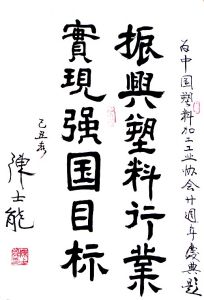 为中国塑料加工工业协会廿週年慶典題
振興塑料行業
實現强国目标
己丑春
陳士能